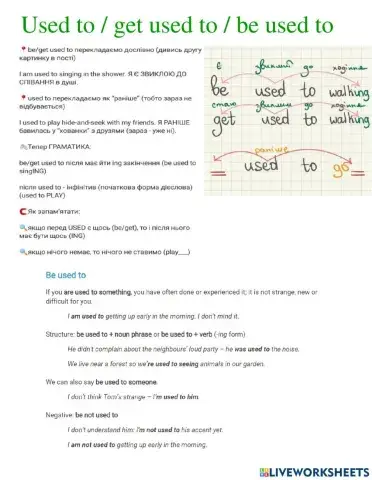 Used to / get used to / be used to
be/get used to перекладаємо дослівно (дивись другу
картинку в пості)
I am used to singing in the shower. Я Є ЗВИКЛОЮ ДО
СПІВАННЯ в душі.
used to перекладаємо як "раніше" (тобто зараз не
відбувається)
I used to play hide-and-seek with my friends. Я РАНІШЕ
бавилась у "хованки" з друзями (зараз - уже ні).
Тепер ГРАМАТИКА:
be/get used to після має йти ing закінчення (be used to
singING)
після used to - інфінітив (початкова форма дієслова)
(used to PLAY)
Як запам'ятати:
якщо перед USED є щось (be/get), то і після нього
має бути щось (ING)
якщо нічого немає, то нічого не ставимо (play___)
є звиклий до ходіння
be used to walking
стаю звиклим до ходіння
get used to walking
раніше
used to go
Be used to
If you are used to something, you have often done or experienced it; it is not strange, new or
difficult for you.
I am used to getting up early in the morning. I don't mind it.
Structure: be used to + noun phrase or be used to + verb (-ing form)
He didn't complain about the neighbours' loud party – he was used to the noise.
We live near a forest so we're used to seeing animals in our garden.
We can also say be used to someone.
I don't think Tom's strange – I'm used to him.
Negative: be not used to
I don't understand him: I'm not used to his accent yet.
I am not used to getting up early in the morning.
LIVEWORKSHEETS